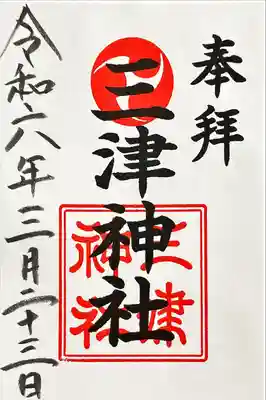 奉拝
三津神社
三津神社
令和六年三月二十三日